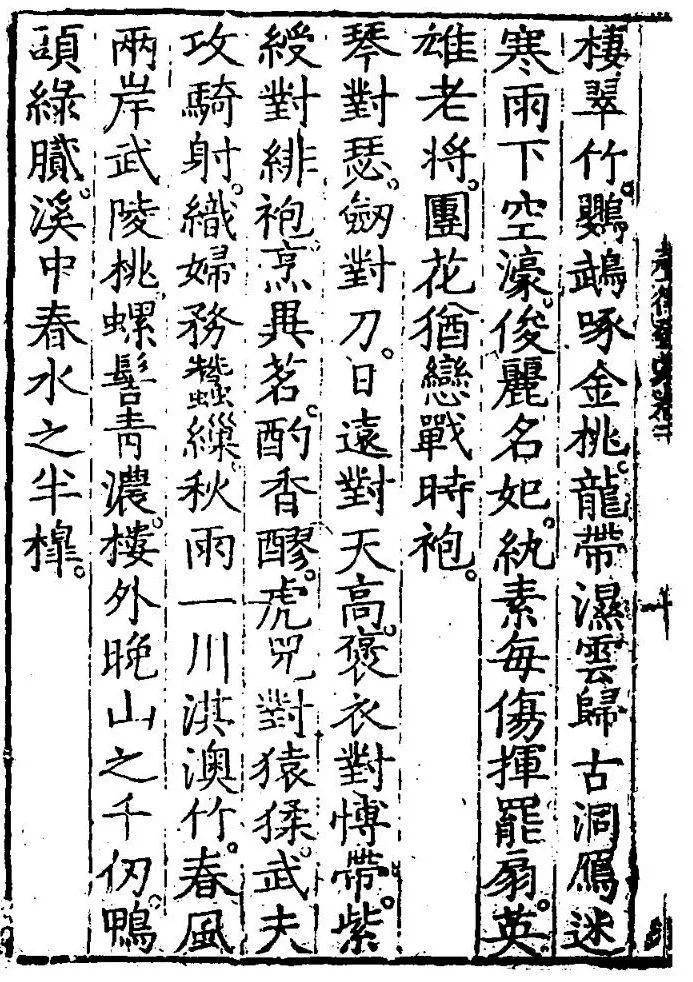 棲翠竹。鸚鵡啄金桃。龍帶濕雲歸古洞鴈迷
寒雨下空濠。俊麗名妃。紈素每傷揮罷扇。英
雄老將。團花猶戀戰時袍。
琴對瑟。劒對刀。日遠對天高。褒衣對博帶。紫
綬對緋袍。烹異茗。酌香醪。虎兕對猿猱。武夫
攻騎射。織婦務蠶繅。秋雨一川淇澳竹。春風
兩岸武陵桃。螺髻青濃。樓外晚山之千仞。鴨
頭綠膩。溪中春水之半槹。